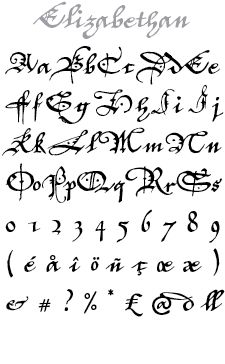 Elizabethan
Aa Bb Cc Dd Ee
Ff Gg Hh Ii Jj
Kk Ll Mm Nn
Oo Pp Qq Rr Ss
0 1 2 3 4 5 6 7 8 9
( é å î ö ñ ç œ æ )
& # ? % * £ @ đ ll